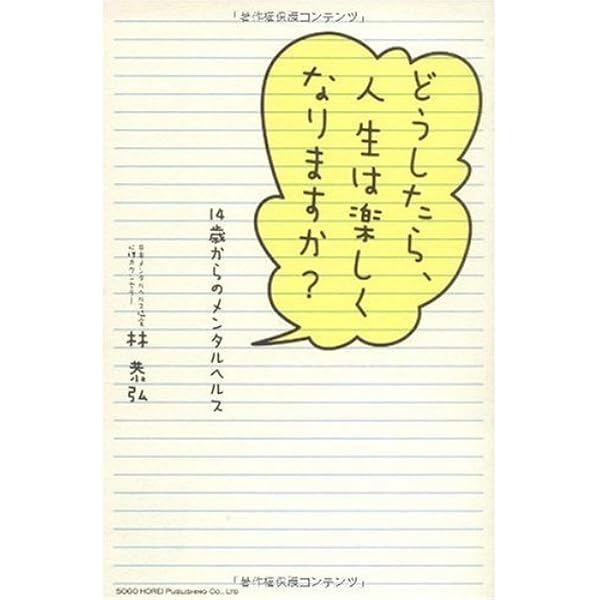 「著作権保護コンテンツ」
どうしたら、
人生は楽しく
なりますか？
14歳からのメンタルヘルス
日本メンタルヘルス協会
心理カウンセラー
林 恭弘
「著作権保護コンテンツ」
SOGO HOREI PUBLISHING CO., LTD